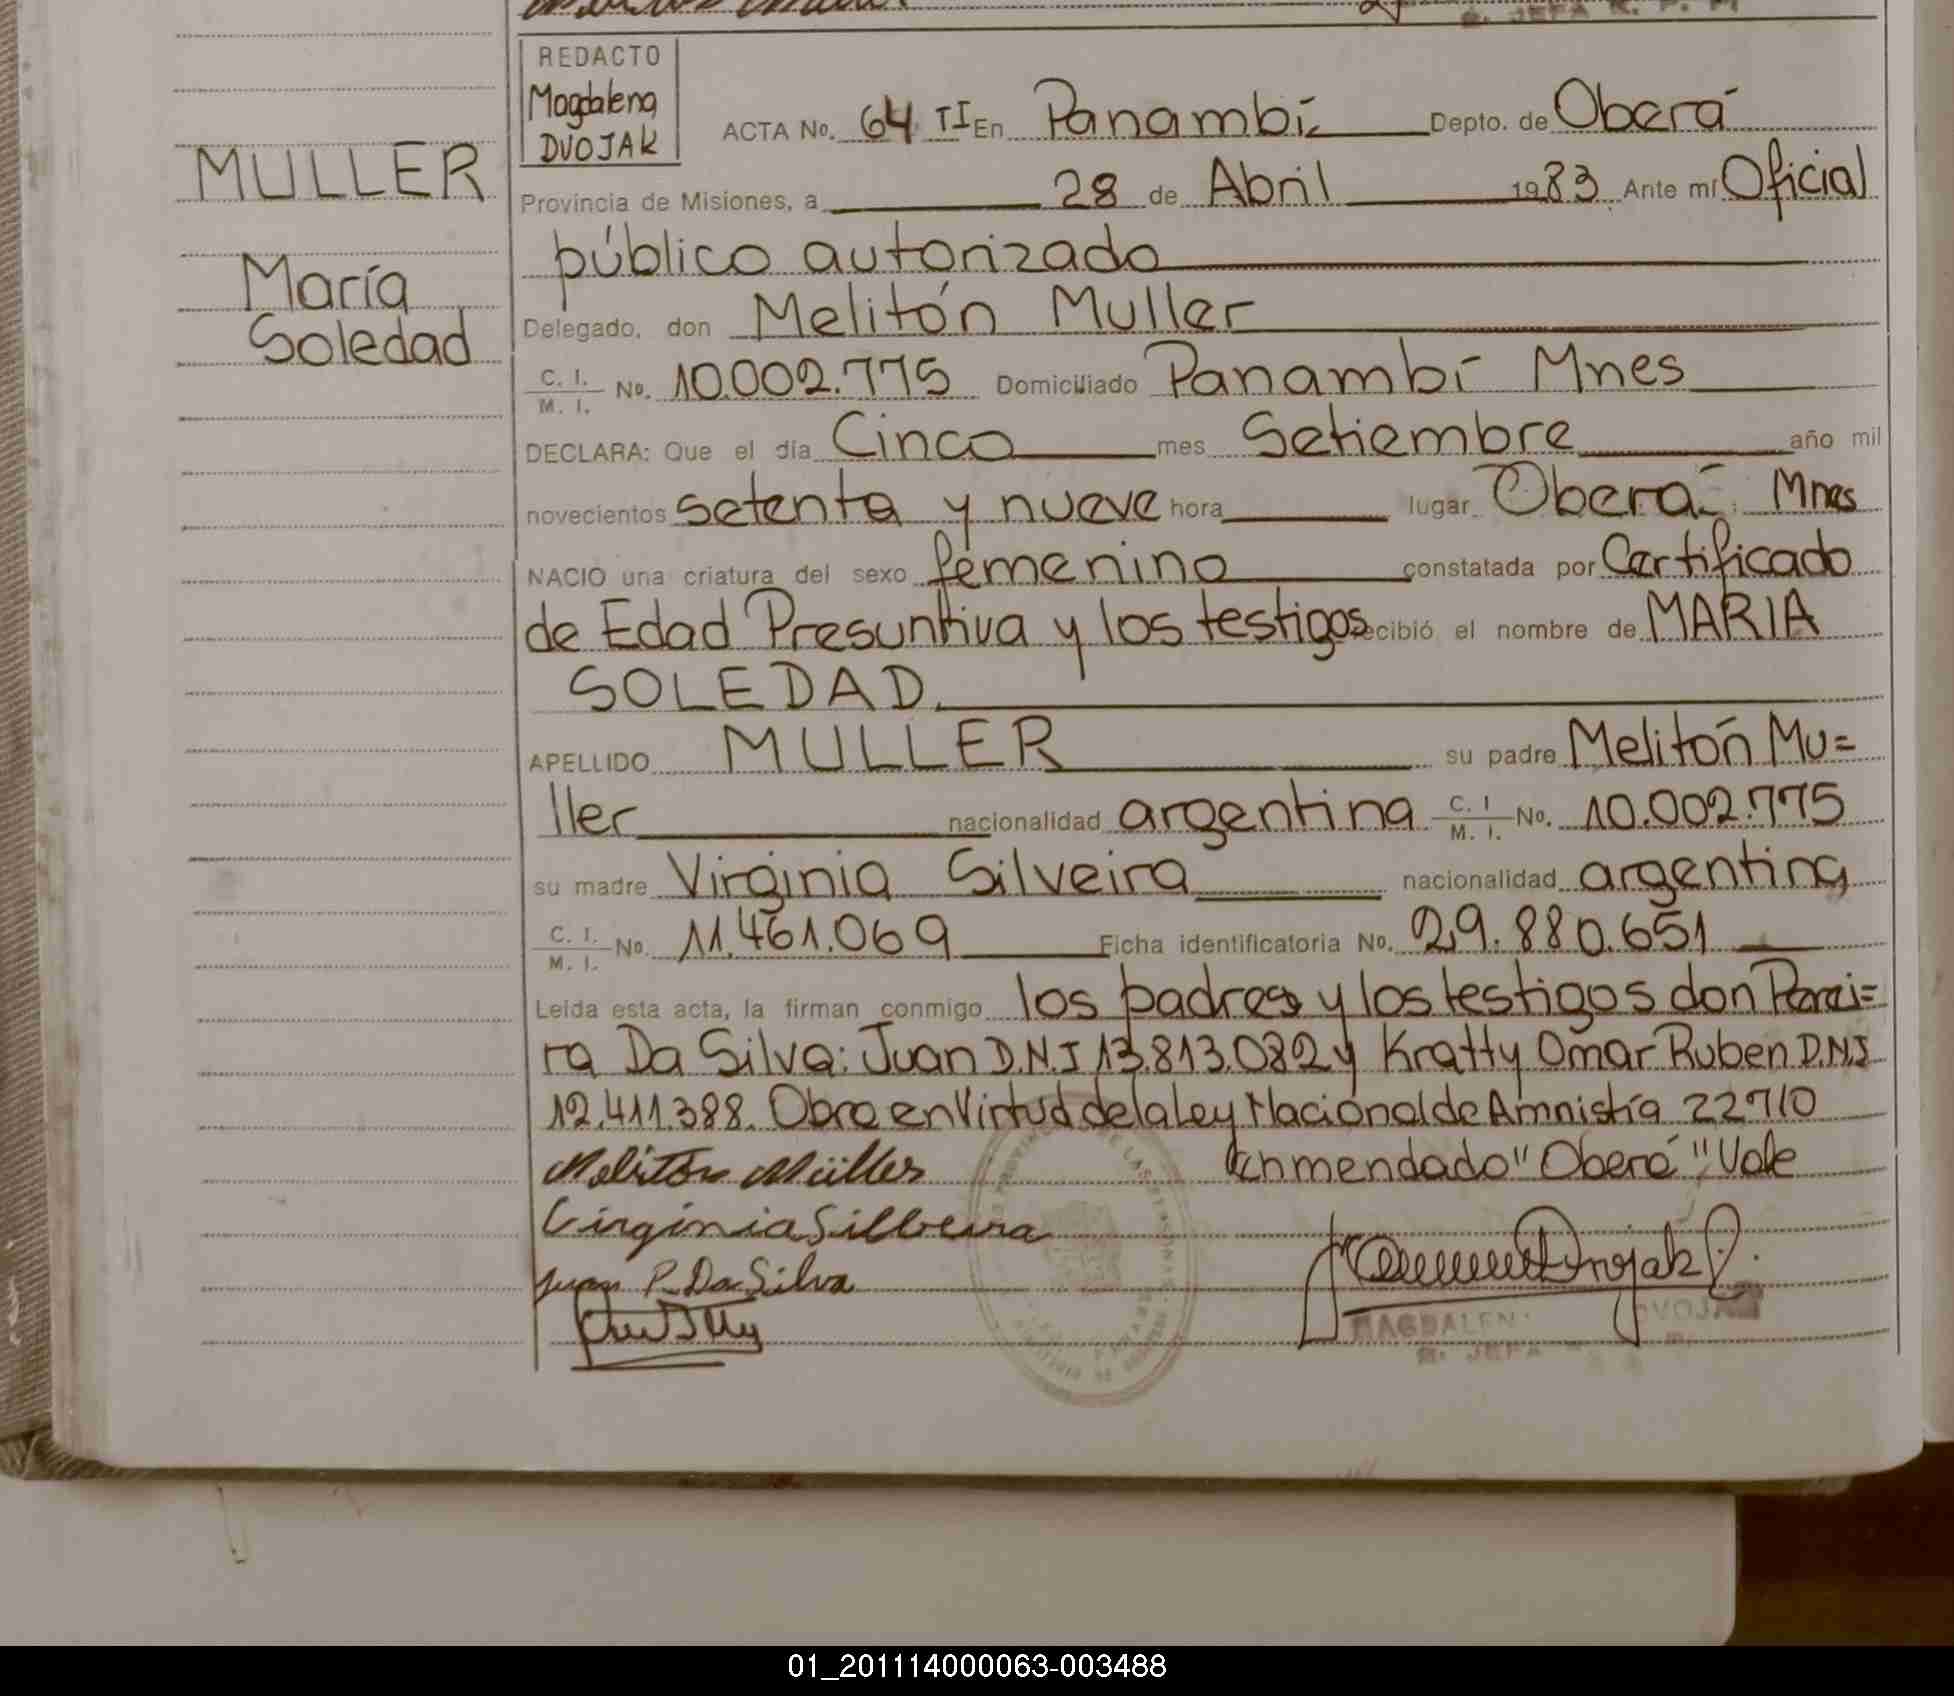 REDACTO
Magdalena
DVOJAK
MULLER
María
Soledad
ACTA No. 64 TI En Panambí Depto. de Oberá
Provincia de Misiones, a 28 de Abril 1983 Ante mí Oficial
público autorizado
Delegado, don Melitón Muller
C. I. / M. I. No. 10.002.775 Domiciliado Panambí Mnes
DECLARA: Que el día Cinco mes Setiembre año mil
novecientos setenta y nueve hora lugar Oberá Mnes
NACIO una criatura del sexo femenino constatada por Certificado
de Edad Presuntiva y los testigos recibió el nombre de MARIA
SOLEDAD
APELLIDO MULLER su padre Melitón Mu=
ller nacionalidad argentina C. I / M. I. No. 10.002.775
su madre Virginia Silveira nacionalidad argentina
C. I. / M. I. No. 11.461.069 Ficha identificatoria No. 29.880.651
Leída esta acta, la firman conmigo los padres y los testigos don Perei=
ra Da Silva: Juan D.N.I 13.813.082 y Kratty Omar Ruben D.N.I
12.411.388. Obro en Virtud de la Ley Nacional de Amnistía 22710
Enmendado "Oberá" Vale
Melitón Müller
Virginia Silbeira
Juan P. Da Silva
Dvojak
MAGDALENA DVOJAK
01_201114000063-003488